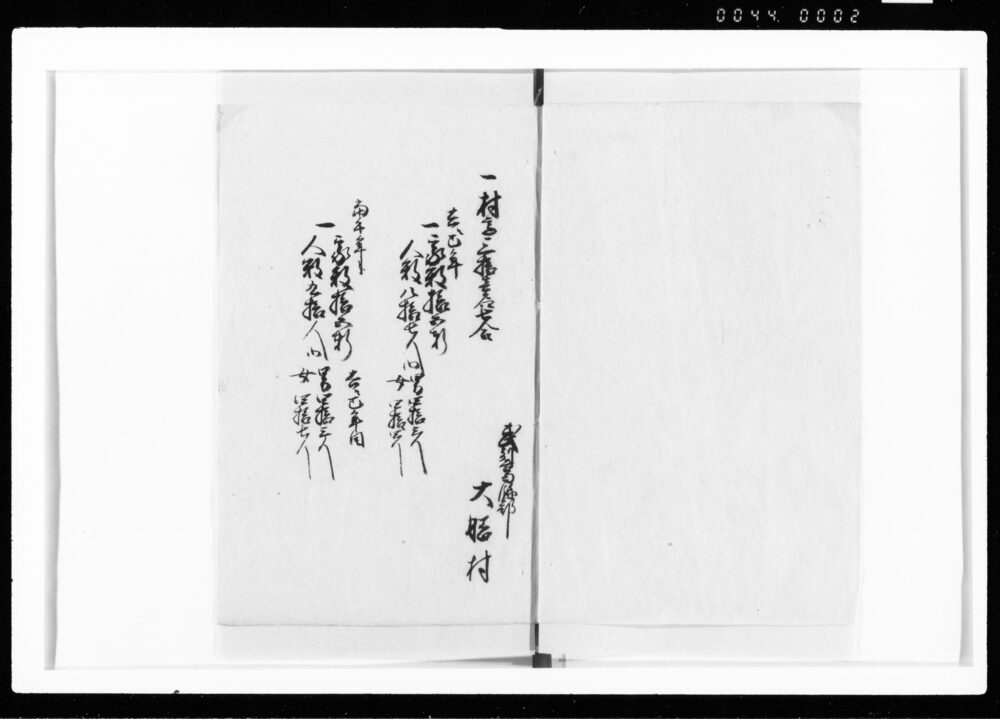 0044 0002
武州葛飾郡
大膳村
一村高三拾壱石七合
去巳年
一家数拾五軒
人数八拾七人内
男四拾三人
女四拾四人
当午年
一家数拾五軒
去巳年同
人数九拾人内
男四拾三人
女四拾七人